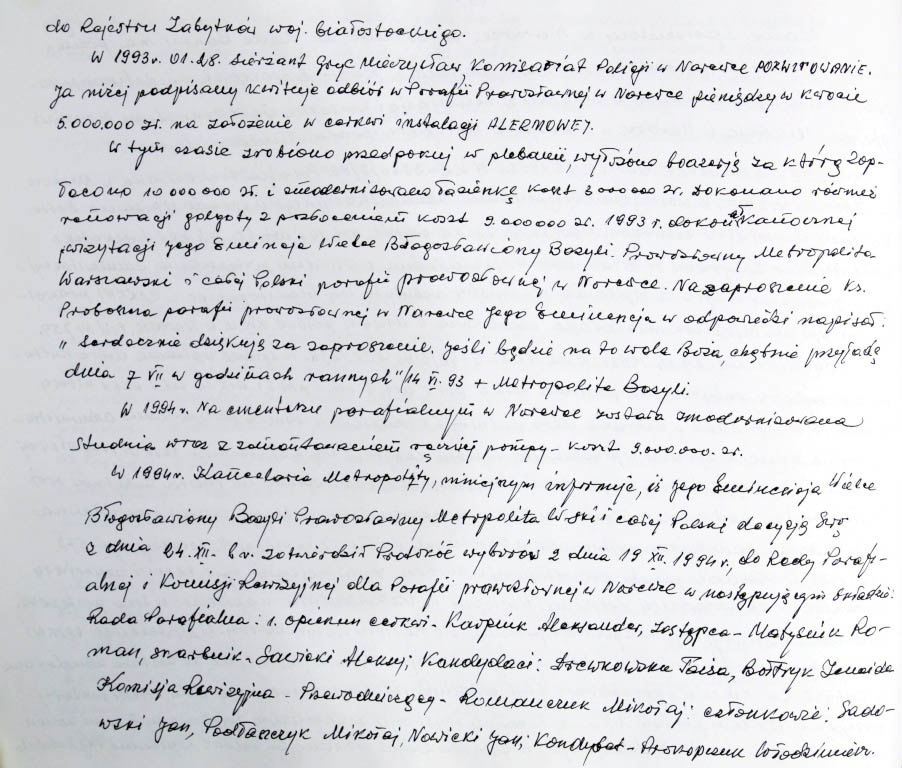 do Rejestru Zabytków woj. białostockiego.
W 1993r. 01.28. sierżant Gryc Mieczysław, Komisariat Policji w Narewce POKWITOWANIE.
Ja niżej podpisany kwituję odbiór w Parafii Prawosławnej w Narewce pieniędzy w kwocie
5.000.000 zł. na założenie w cerkwi instalacji ALERMOWEJ.
W tym czasie zrobiono przedpokój w plebanii, wyłożono boazerją za którą zap-
łacono 10 000 000 zł. i zmodernizowano łazienkę koszt 3 000 000 zł. Dokonano również
renowacji golgoty z pozłoceniem koszt 9.000000 zł. 1993 r. dokonał Kanonicznej
wizytacji Jego Eminencja Wielce Błogosławiony Bazyli. Prawosławny Metropolita
Warszawski i całej Polski parafii prawosławnej w Narewce. Na zaproszenie Ks.
Proboszcza parafii prawosławnej w Narewce Jego Eminencja w odpowiedzi napisał:
„Serdecznie dziękuję za zaproszenie. Jeśli będzie na to wola Boża, chętnie przyjadę
dnia 7 VII w godzinach rannych" /14 VI. 93 + Metropolita Bazyli.
W 1994r. Na cmentarzu parafialnym w Narewce została zmodernizowana
studnia wraz z zamontowaniem ręcznej pompy - koszt 9.000.000. zł.
W 1994r. Kancelaria Metropolity, niniejszym informuje, iż Jego Eminencja Wielce
Błogosławiony Bazyli Prawosławny Metropolita W-ski i całej Polski decyzją Swą
z dnia 24. XII. b.r. zatwierdził Protokół wyborów z dnia 19 XII. 1994r., do Rady Parafi-
alnej i Komisji Rewizyjnej dla Parafii prawosławnej w Narewce w następującym składzie:
Rada Parafialna: 1. opiekun cerkwi - Karpiuk Aleksander, zastępca - Matysiuk Ro-
man, skarbnik - Sawicki Aleksy; Kandydaci: Drewnowska Taisa, Bołtryk Zenaida
Komisja Rewizyjna - Przewodniczący - Romańczuk Mikołaj: członkowie: Sado-
wski Jan, Podłaszczyk Mikołaj, Nowicki Jan; Kandydat - Prokopiuk Włodzimierz.